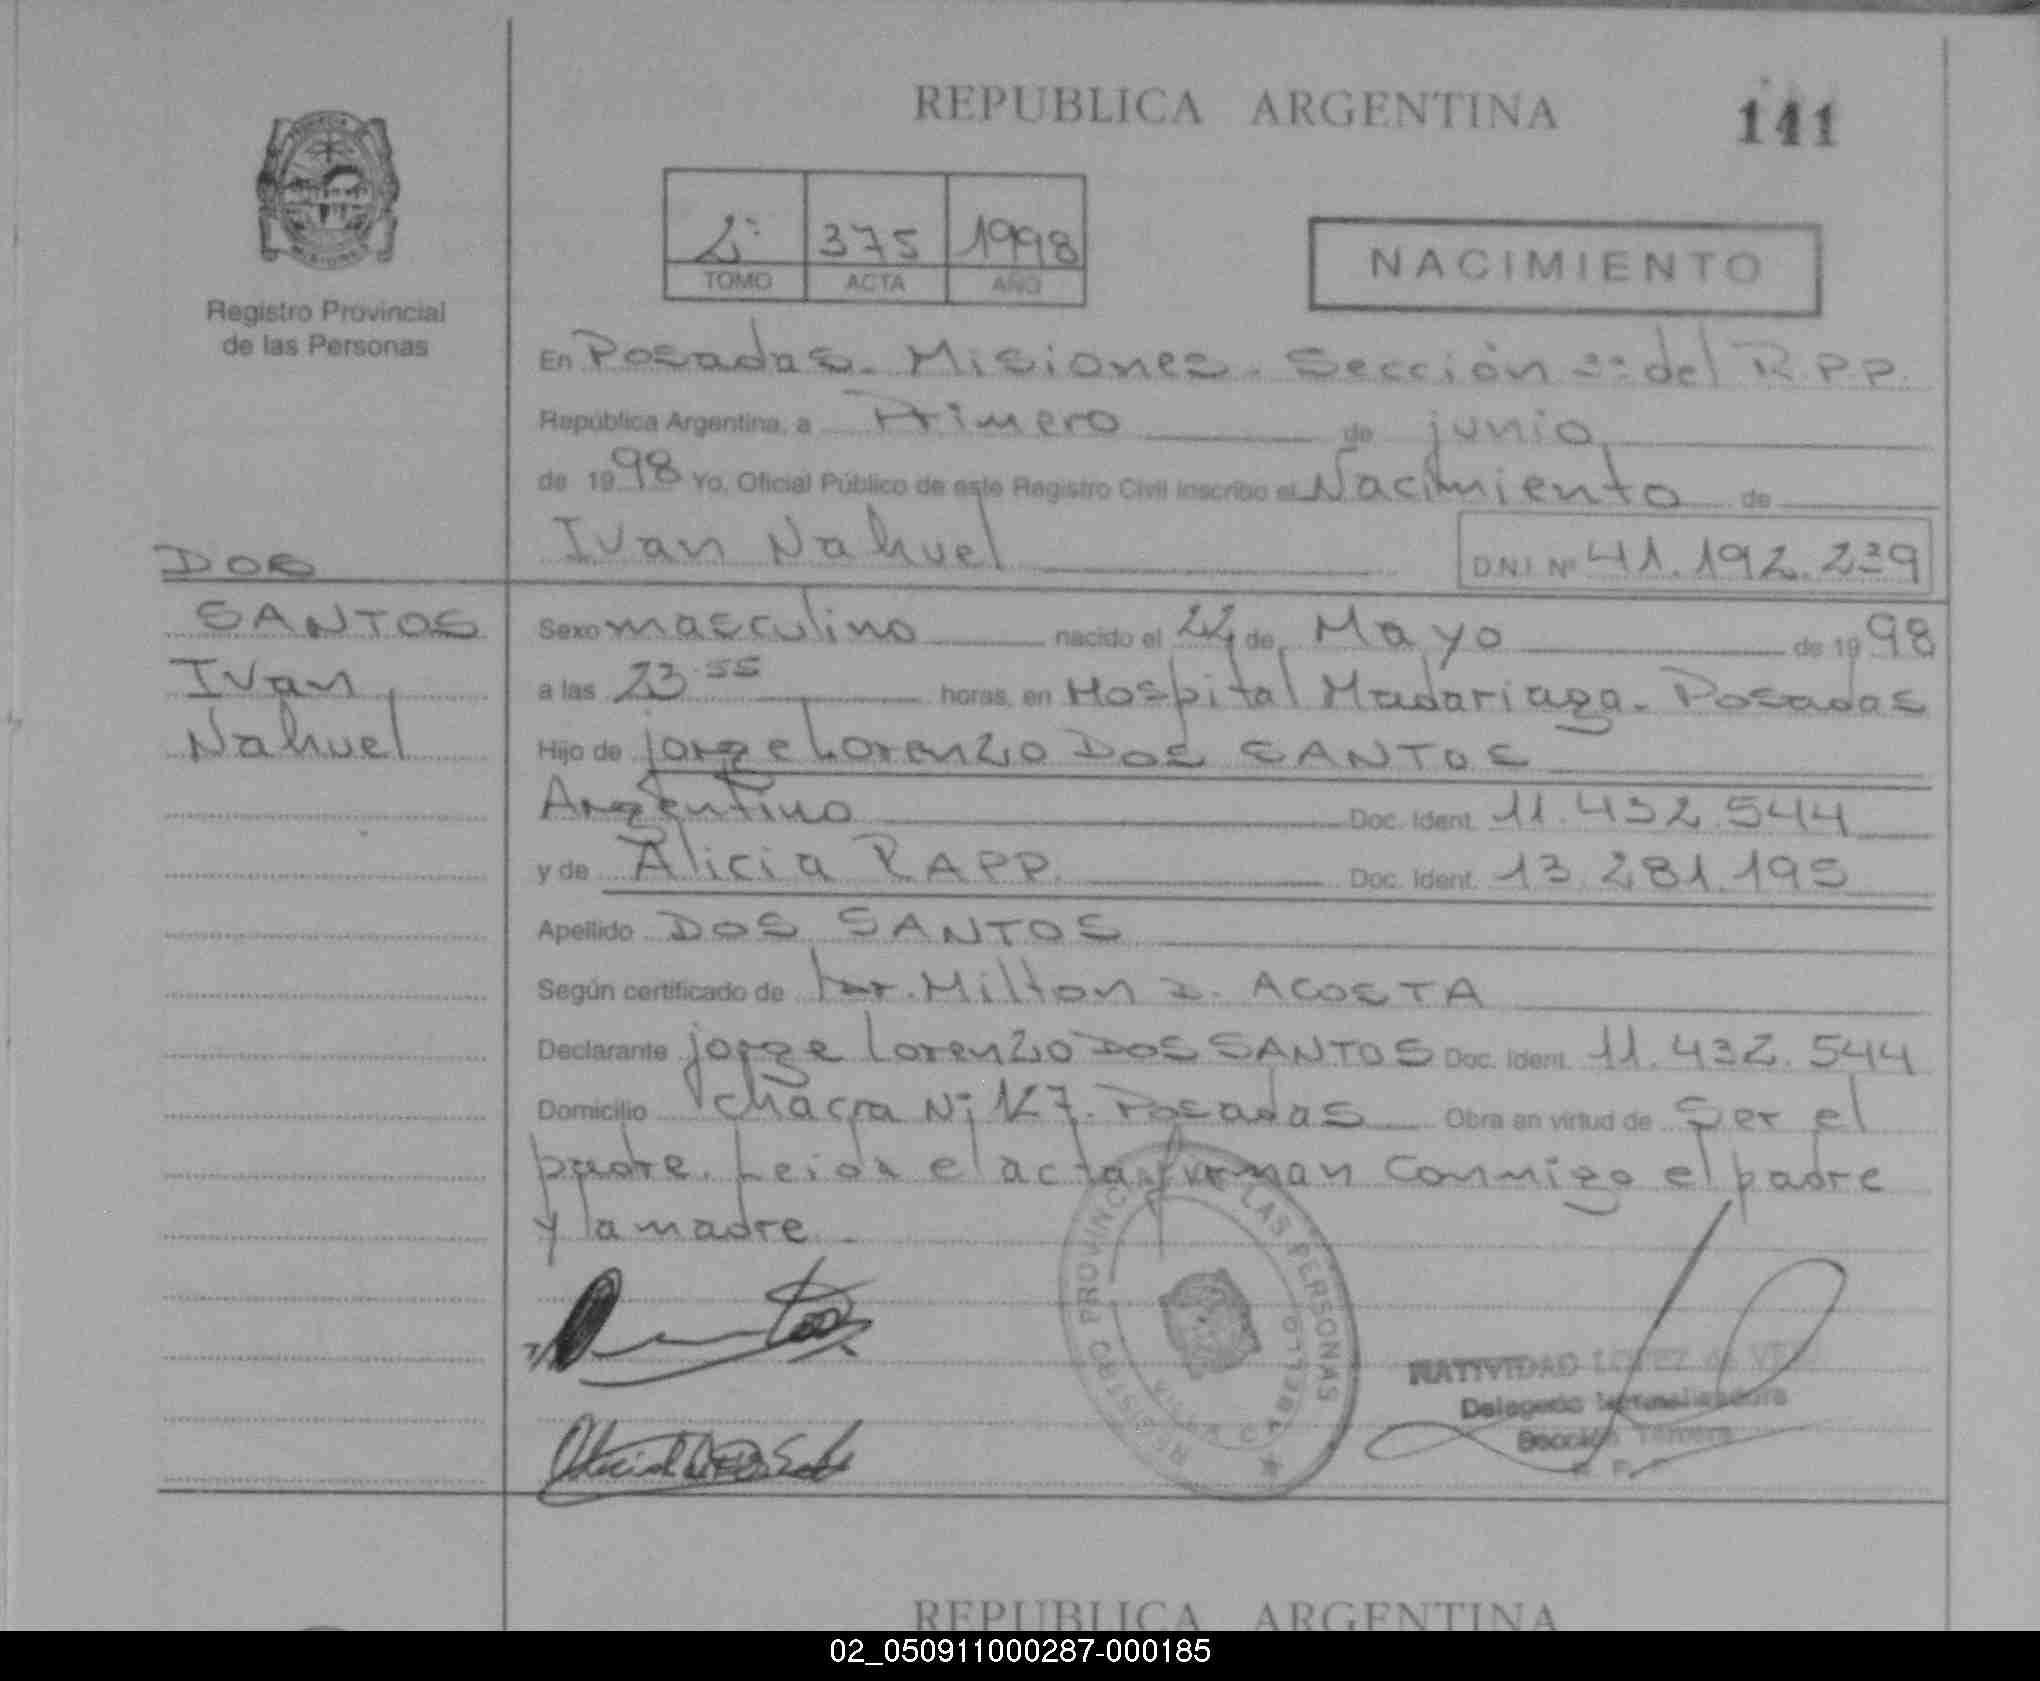 REPUBLICA ARGENTINA
141
2º 375 1998
TOMO ACTA AÑO
NACIMIENTO
Registro Provincial
de las Personas
En Posadas - Misiones - Sección 3º del R.P.P.
República Argentina, a Primero de junio
de 1998 Yo, Oficial Público de este Registro Civil inscribo el Nacimiento de
Ivan Nahuel D.N.I. Nº 41.192.239
DOS
SANTOS
Ivan
Nahuel
Sexo masculino nacido el 22 de Mayo de 1998
a las 23 55 horas, en Hospital Madariaga - Posadas
Hijo de jorge Lorenzo DOS SANTOS
Argentino Doc. Ident. 11.432.544
y de Alicia RAPP Doc. Ident. 13.281.195
Apellido DOS SANTOS
Según certificado de Milton D. ACOSTA
Declarante jorge Lorenzo DOS SANTOS Doc. Ident. 11.432.544
Domicilio chacra Nº 127. Posadas Obra en virtud de Ser el
padre. Leida el acta firman conmigo el padre
y la madre.-
REGISTRO PROVINCIAL DE LAS PERSONAS
NATIVIDAD LOPEZ de
Delegada
Sección Tercera
R. P. P.
REPUBLICA ARGENTINA
02_050911000287-000185